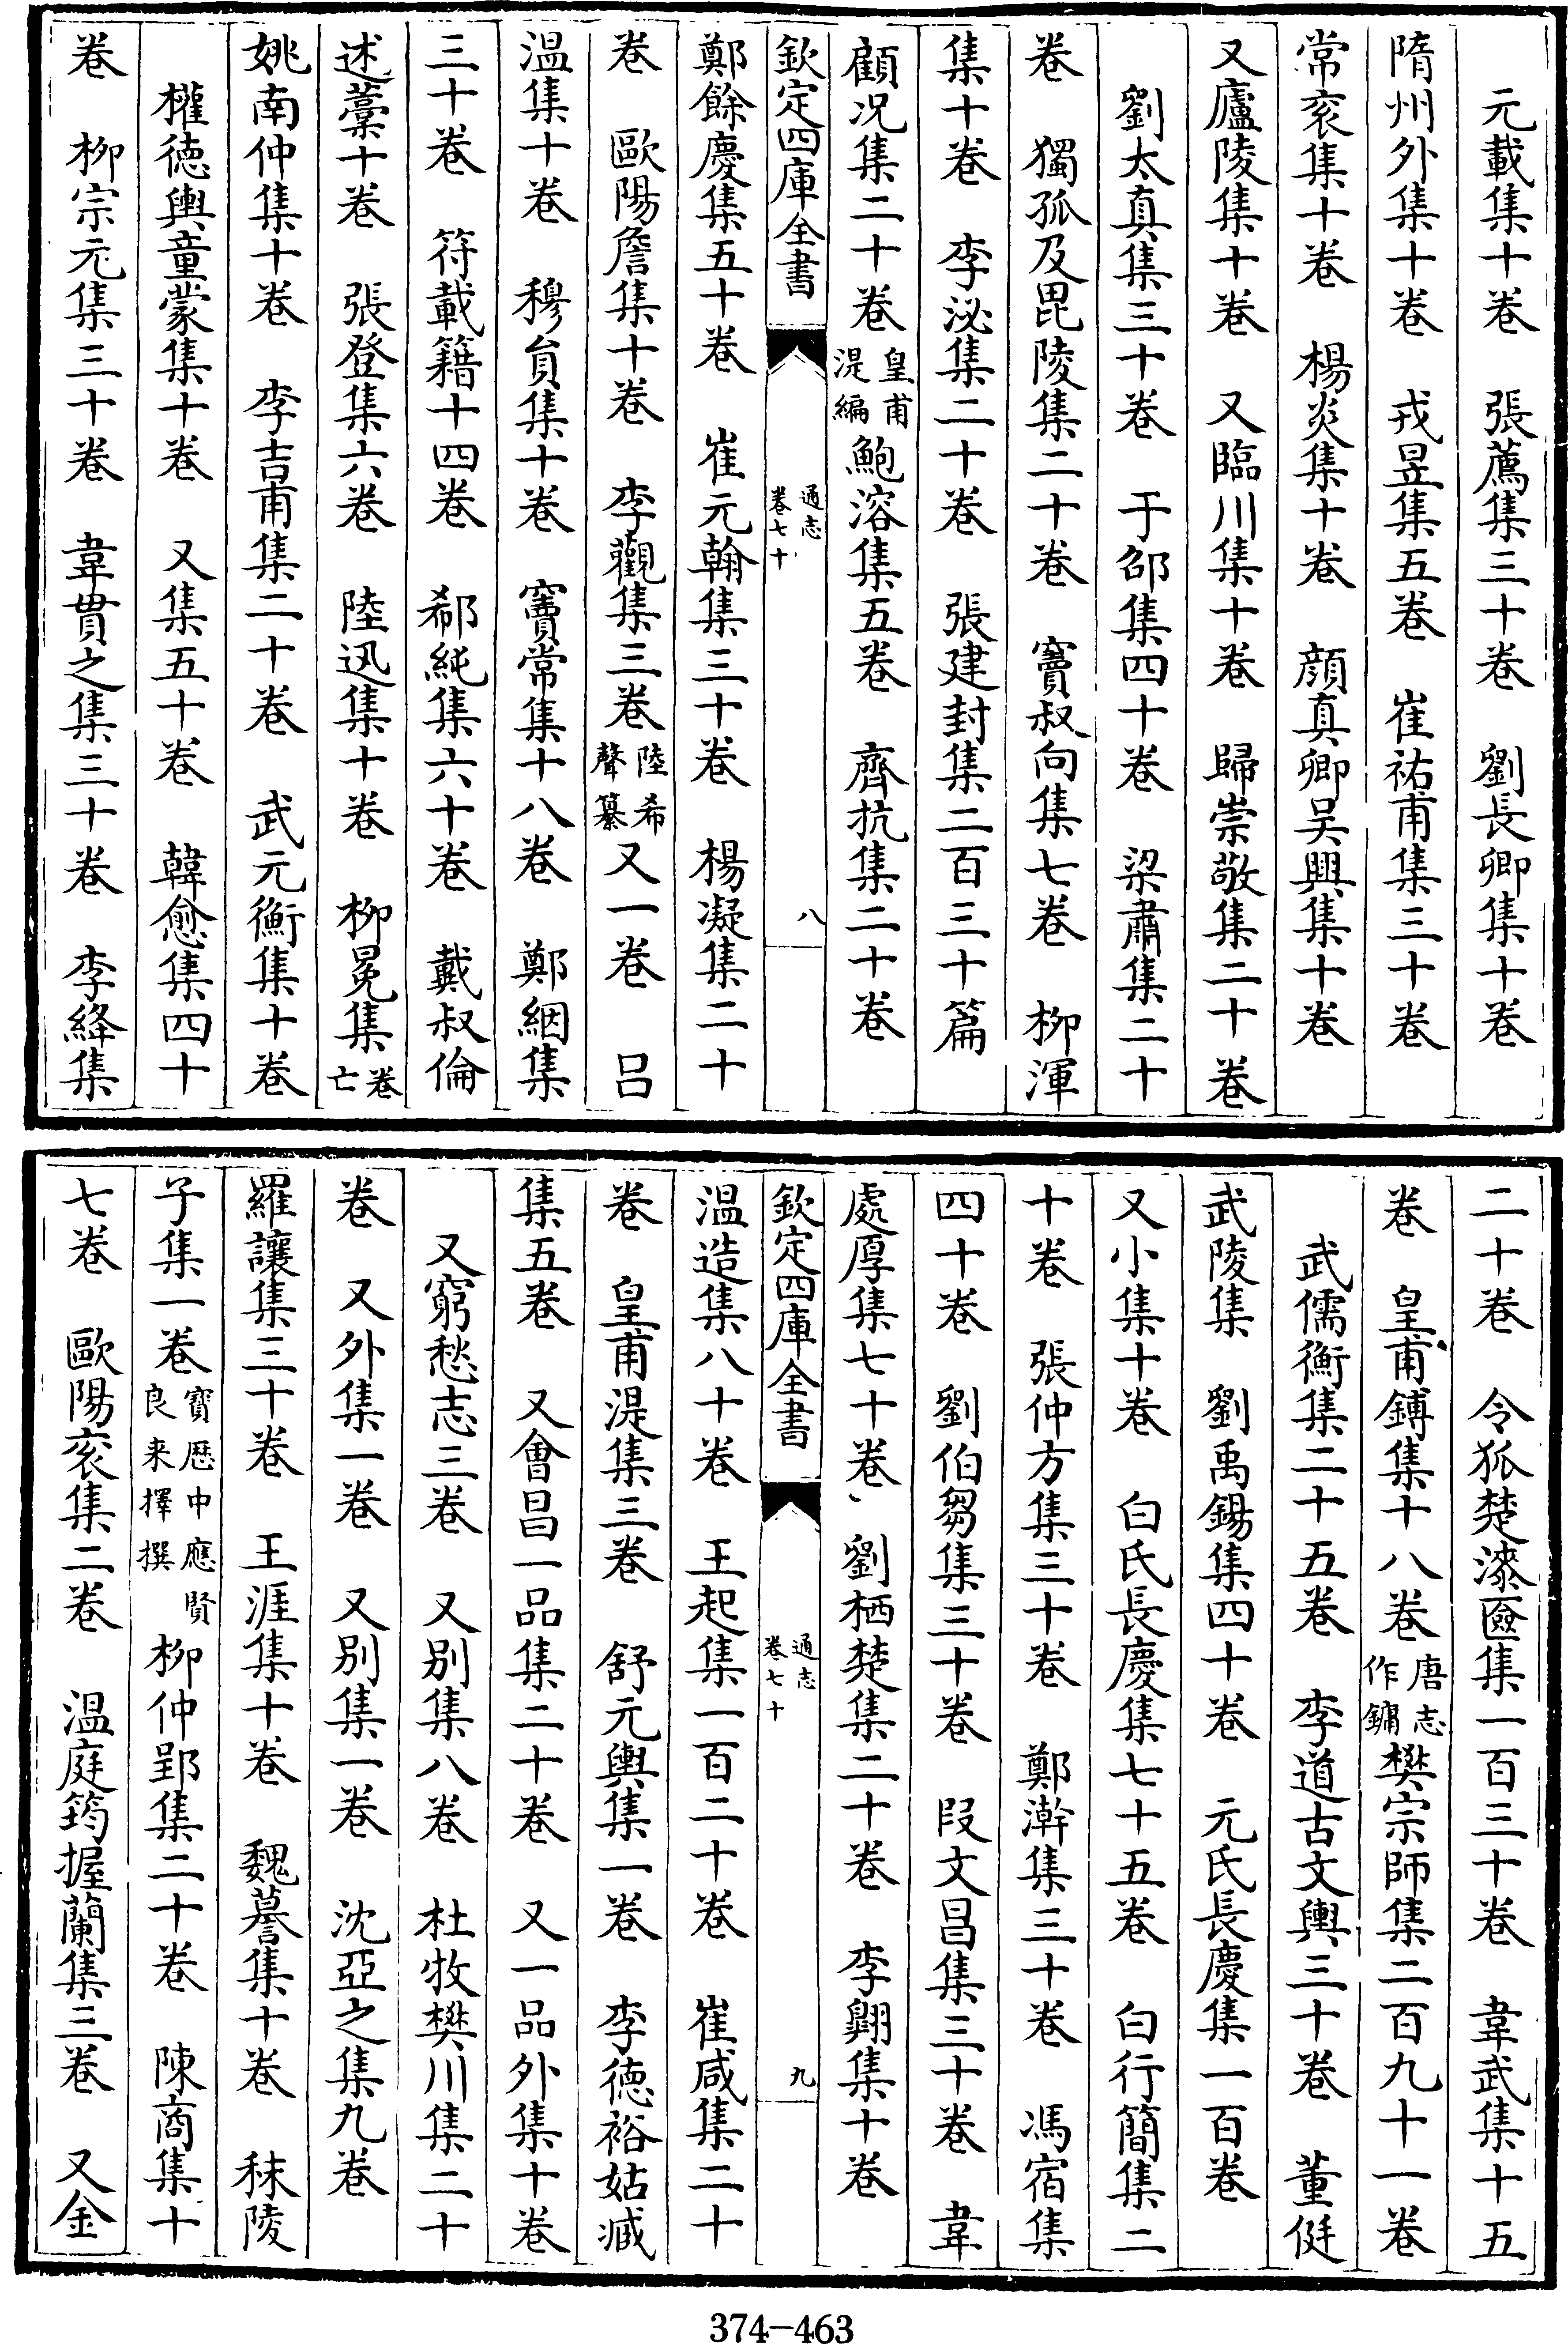 元載集十卷　張薦集三十卷　劉長卿集十卷
隋州外集十卷　戎昱集五卷　崔祐甫集三十卷
常衮集十卷　楊炎集十卷　顔真卿吳興集十卷
又廬陵集十卷　又臨川集十卷　歸崇敬集二十卷
劉太真集三十卷　于邵集四十卷　梁肅集二十
卷　獨孤及毘陵集二十卷　竇叔向集七卷　柳渾
集十卷　李泌集二十卷　張建封集二百三十篇
顧况集二十卷皇甫湜編鮑溶集五卷　齊抗集二十卷
欽定四庫全書　通志卷七十　八
鄭餘慶集五十卷　崔元翰集三十卷　楊凝集二十
卷　歐陽詹集十卷　李觀集三卷陸希聲纂又一卷　呂
温集十卷　穆員集十卷　竇常集十八卷　鄭絪集
三十卷　符載籍十四卷　郗純集六十卷　戴叔倫
述藁十卷　張登集六卷　陸迅集十卷　柳冕集卷亡
姚南仲集十卷　李吉甫集二十卷　武元衡集十卷
權徳輿童蒙集十卷　又集五十卷　韓愈集四十
卷　柳宗元集三十卷　韋貫之集三十卷　李絳集
二十卷　令狐楚漆匳集一百三十卷　韋武集十五
卷　皇甫鎛集十八卷唐志作鏞樊宗師集二百九十一卷
武儒衡集二十五卷　李道古文輿三十卷　董侹
武陵集　劉禹錫集四十卷　元氏長慶集一百卷
又小集十卷　白氏長慶集七十五卷　白行簡集二
十卷　張仲方集三十卷　鄭澣集三十卷　馮宿集
四十卷　劉伯芻集三十卷　段文昌集三十卷　韋
處厚集七十卷　劉栖楚集二十卷　李翺集十卷
欽定四庫全書　通志卷七十　九
温造集八十卷　王起集一百二十卷　崔咸集二十
卷　皇甫湜集三卷　舒元輿集一卷　李徳裕姑臧
集五卷　又會昌一品集二十卷　又一品外集十卷
又窮愁志三卷　又别集八卷　杜牧樊川集二十
卷　又外集一卷　又别集一卷　沈亞之集九卷
羅讓集三十卷　王涯集十卷　魏謩集十卷　秣陵
子集一卷寳厯中應賢良来擇撰柳仲郢集二十卷　陳商集十
七卷　歐陽衮集二卷　温庭筠握蘭集三卷　又金
374-463